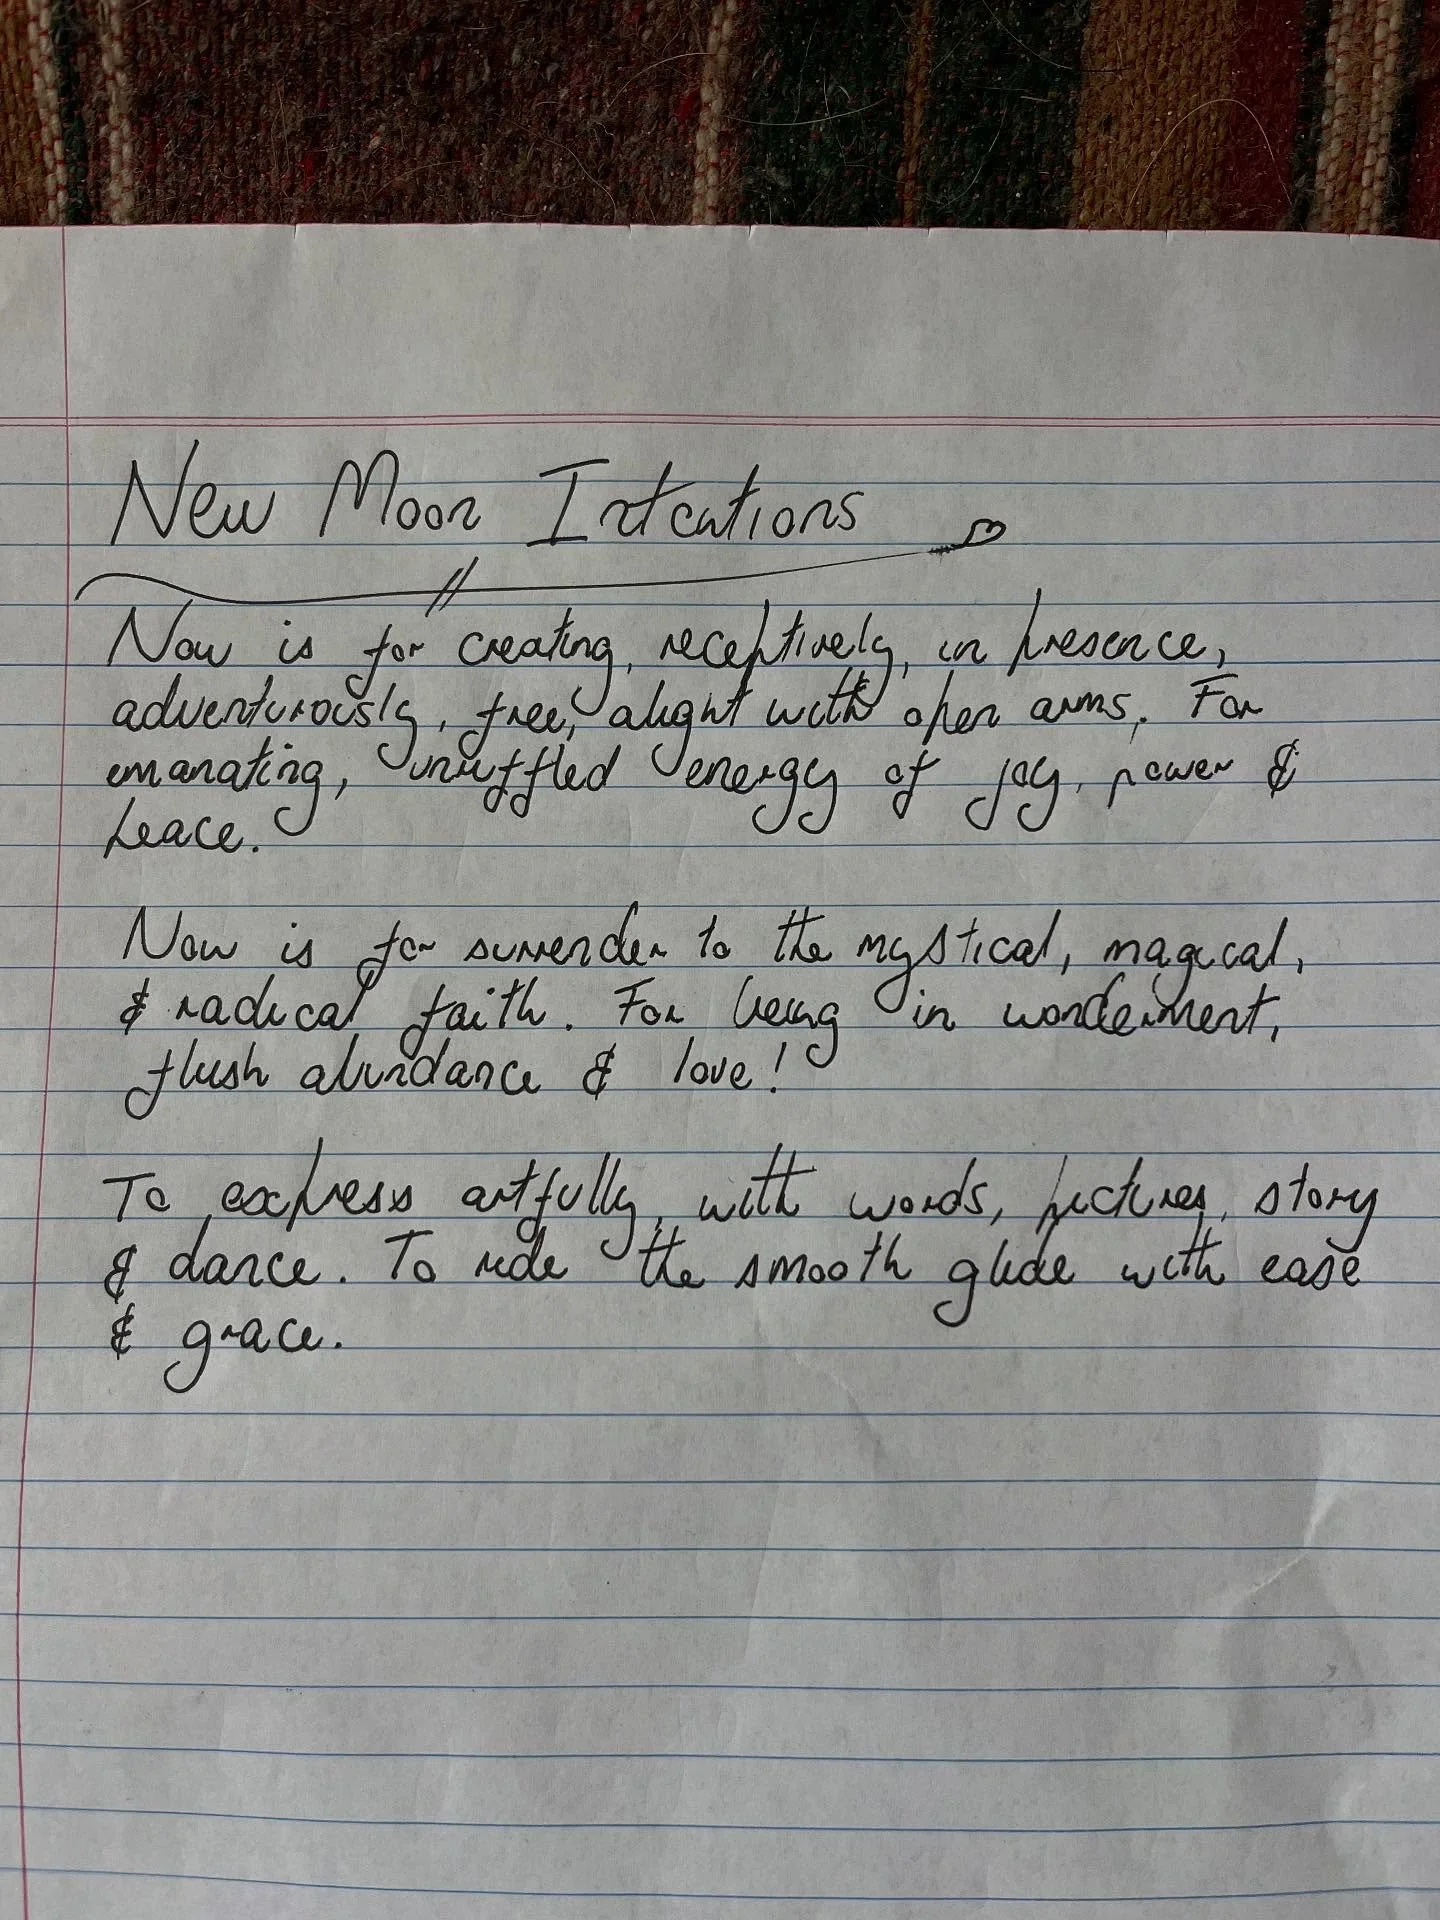 New Moon Intentions
Now is for creating, receptively, in presence,
adventurously, free, alight with open arms. For
emanating, unruffled energy of joy, power &
peace.
Now is for surrender to the mystical, magical,
& radical faith. For being in wonderment,
flush abundance & love!
To express artfully, with words, pictures, story
& dance. To ride the smooth glide with ease
& grace.